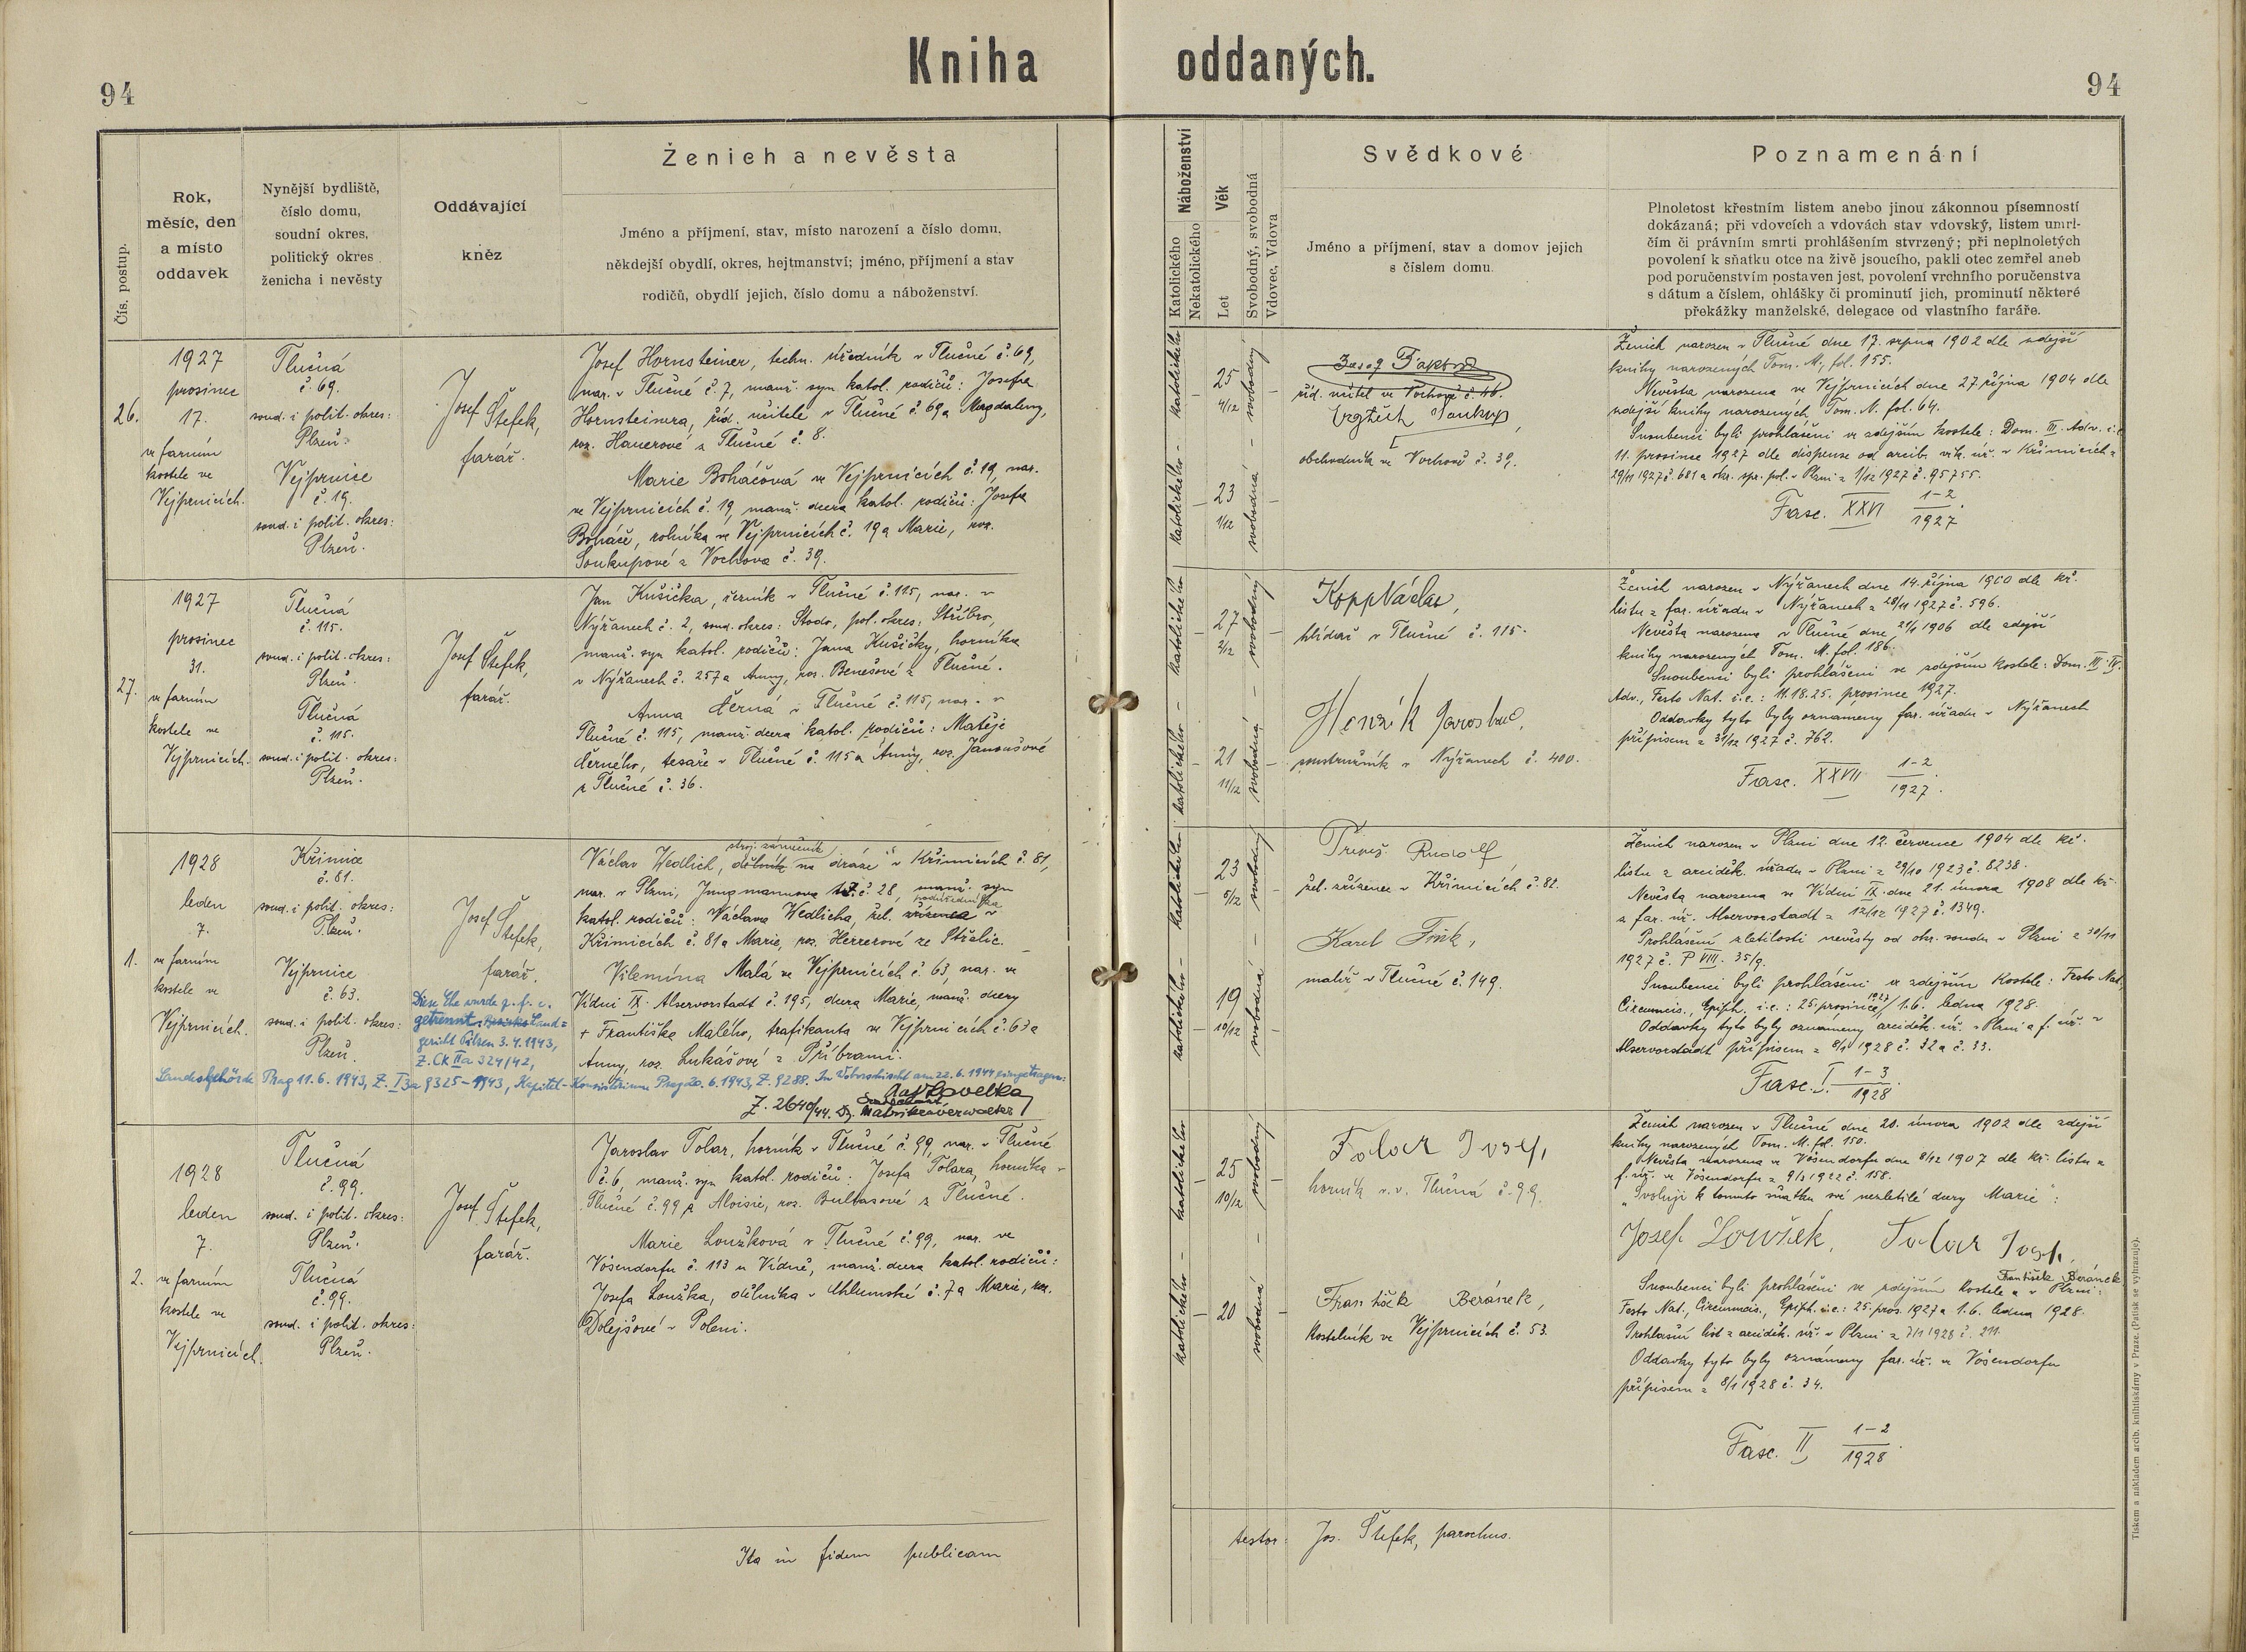 94
Kniha oddaných.
94
Čís. postup.
Rok,
měsíc, den
a místo
oddavek
Nynější bydliště,
číslo domu,
soudní okres,
politický okres
ženicha i nevěsty
Oddávající
kněz
Ženich a nevěsta
Jméno a příjmení, stav, místo narození a číslo domu,
někdejší obydlí, okres, hejtmanství; jméno, příjmení a stav
rodičů, obydlí jejich, číslo domu a náboženství.
Náboženství
Katolického
Nekatolického
Věk
Let
Svobodný, svobodná
Vdovec, Vdova
Svědkové
Jméno a příjmení, stav a domov jejich
s číslem domu.
Poznamenání
Plnoletost křestním listem anebo jinou zákonnou písemností
dokázaná; při vdovcích a vdovách stav vdovský, listem umrl-
čím či právním smrti prohlášením stvrzený; při neplnoletých
povolení k sňatku otce na živě jsoucího, pakli otec zemřel aneb
pod poručenstvím postaven jest, povolení vrchního poručenstva
s dátum a číslem, ohlášky či prominutí jich, prominutí některé
překážky manželské, delegace od vlastního faráře.
26.
1927
prosinec
17.
ve farním
kostele ve
Vejprnicích.
Tlučná
č. 69.
soud. i polit. okres:
Plzeň.
Vejprnice
č. 19.
soud. i polit. okres:
Plzeň.
Josef Štefek,
farář.
Josef Hornsteiner, techn. úředník v Tlučné č. 69,
nar. v Tlučné č. 7, manž. syn katol. rodičů: Josefa
Hornsteinera, říd. učitele v Tlučné č. 69 a Magdaleny,
roz. Hauerové z Tlučné č. 8.
Marie Boháčová ve Vejprnicích č. 19, nar.
ve Vejprnicích č. 19, manž. dcera katol. rodičů: Josefa
Boháče, rolníka ve Vejprnicích č. 19 a Marie, roz.
Soukupové z Vochova č. 39.
katolického – katolického
25
4/12
23
1/12
svobodný
svobodná
říd. učitel ve Vochově č. 46.
Vojtěch Soukup,
obchodník ve Vochově č. 39.
Ženich narozen v Tlučné dne 17. srpna 1902 dle zdejší
knihy narozených Tom. M. fol. 155.
Nevěsta narozena ve Vejprnicích dne 27. října 1904 dle
zdejší knihy narozených Tom. N. fol. 64.
Snoubenci byli prohlášeni ve zdejším kostele: Dom. III. Adv. i.e.
11. prosince 1927 dle dispense od arcib. vik. úř. v Křimicích z
29/11 1927 č. 681 a okr. spr. pol. v Plzni z 1/12 1927 č. 95755.
Fasc. XXVI 1-2
1927
27.
1927
prosinec
31.
ve farním
kostele ve
Vejprnicích.
Tlučná
č. 115.
soud. i polit. okres:
Plzeň.
Tlučná
č. 115.
soud. i polit. okres:
Plzeň.
Josef Štefek,
farář.
Jan Kušička, četník v Tlučné č. 115, nar. v
Nýřanech č. 2, soud. okres: Stodo, pol. okres: Stříbro,
manž. syn katol. rodičů: Jana Kušičky, horníka
v Nýřanech č. 257 a Anny, roz. Benešové z Tlučné.
Anna Černá v Tlučné č. 115, nar. v
Tlučné č. 115, manž. dcera katol. rodičů: Matěje
Černého, tesaře v Tlučné č. 115 a Anny, roz. Janoušové
z Tlučné č. 36.
katolického – katolického
27
2/12
21
11/12
svobodný
svobodná
Kopp Václav,
hlídač v Tlučné č. 115.
Henzík Jaroslav,
soustružník v Nýřanech č. 400.
Ženich narozen v Nýřanech dne 14. října 1900 dle kř.
listu z far. úřadu v Nýřanech z 28/11 1927 č. 596.
Nevěsta narozena v Tlučné dne 21/1 1906 dle zdejší
knihy narozených Tom. M. fol. 186.
Snoubenci byli prohlášeni ve zdejším kostele: Dom. III. IV.
Adv., Festo Nat. i.e.: 11. 18. 25. prosince 1927.
Oddavky tyto byly oznámeny far. úřadu v Nýřanech
přípisem z 31/12 1927 č. 762.
Fasc. XXVII 1-2
1927.
1.
1928
leden
7.
ve farním
kostele ve
Vejprnicích.
Křimice
č. 81.
soud. i polit. okres:
Plzeň.
Vejprnice
č. 63.
soud. i polit. okres:
Plzeň.
Josef Štefek,
farář.
Diese Ehe wurde g. f. c.
getrennt Land=
gericht Pilsen 3. 4. 1943,
Z. Ck IIa 324/42,
Landesbehörde Prag 11. 6. 1943, Z. I3a 9325-1943, Kapitel-Konsistorium Prag 20. 6. 1943, Z. 9288. In Woboschischt am 22. 6. 1944 eingetragen:
Z. 2640/44. Matrikenverwalter
stroj. zámečník
Václav Wedlich, dělník na dráze v Křimicích č. 81,
nar. v Plzni, Jungmannova tř. č. 28, manž. syn
katol. rodičů: Václava Wedlicha, žel. zřízence v
Křimicích č. 81 a Marie, roz. Herzerové ze Střelic.
Vilemína Malá ve Vejprnicích č. 63, nar. ve
Vídni IX. Alservorstadt č. 195, dcera Marie, manž. dcery
+ Františka Malého, trafikanta ve Vejprnicích č. 63 a
Anny, roz. Lukášové z Příbrami.
katolického – katolického
23
5/12
19
10/12
svobodný
svobodná
Rudolf
žel. zřízenec v Křimicích č. 82.
Karel Fišk,
malíř v Tlučné č. 149.
Ženich narozen v Plzni dne 12. července 1904 dle kř.
listu z arciděk. úřadu v Plzni z 29/10 1923 č. 8238.
Nevěsta narozena ve Vídni IX. dne 21. února 1908 dle kř.
z far. úř. Alservorstadt z 12/12 1927 č. 1349.
Prohlášení zletilosti nevěsty od okr. soudu v Plzni z 30/11
1927 č. P VIII. 35/9.
Snoubenci byli prohlášeni ve zdejším kostele: Festo Nat.,
Circumcis., Epiph. i.e.: 25. prosince 1927, 1. 6. ledna 1928.
Oddavky tyto byly oznámeny arciděk. úř. v Plzni a f. úř. v
Alservorstadt přípisem z 8/1 1928 č. 32 a č. 33.
Fasc. I. 1-3
1928.
2.
1928
leden
7.
ve farním
kostele ve
Vejprnicích.
Tlučná
č. 99.
soud. i polit. okres:
Plzeň.
Tlučná
č. 99.
soud. i polit. okres:
Plzeň.
Josef Štefek,
farář.
Jaroslav Tolar, horník v Tlučné č. 99, nar. v Tlučné
č. 6, manž. syn katol. rodičů: Josefa Tolara, horníka v
Tlučné č. 99 a Aloisie, roz. Bultasové z Tlučné.
Marie Loužková v Tlučné č. 99, nar. ve
Vösendorfu č. 113 u Vídně, manž. dcera katol. rodičů:
Josefa Loužka, dělníka v Chlumské č. 7 a Marie, roz.
Dolejšové v Poleni.
katolického – katolického
25
10/12
20
svobodný
svobodná
Tolar Josef,
horník v. v. Tlučná č. 99.
František Beránek,
kostelník ve Vejprnicích č. 53.
Ženich narozen v Tlučné dne 20. února 1902 dle zdejší
knihy narozených Tom. M. fol. 150.
Nevěsta narozena ve Vösendorfu dne 8/12 1907 dle kř. listu z
f. úř. ve Vösendorfu z 9/3 1922 č. 158.
„Svoluji k tomuto sňatku své nezletilé dcery Marie":
Josef Loužek, Tolar Josef,
František Beránek
Snoubenci byli prohlášeni ve zdejším kostele a v Plzni:
Festo Nat., Circumcis., Epiph. i.e.: 25. pros. 1927 a 1. 6. ledna 1928.
Prohlašní list z arciděk. úř. v Plzni z 7/1 1928 č. 211.
Oddavky tyto byly oznámeny far. úř. ve Vösendorfu
přípisem z 8/1 1928 č. 34.
Fasc. II 1-2
1928.
Ita in fidem publicam
testor: Jos. Štefek, parochus.
Tiskem a nákladem arcib. knihtiskárny v Praze. (Patisk se vyhrazuje).